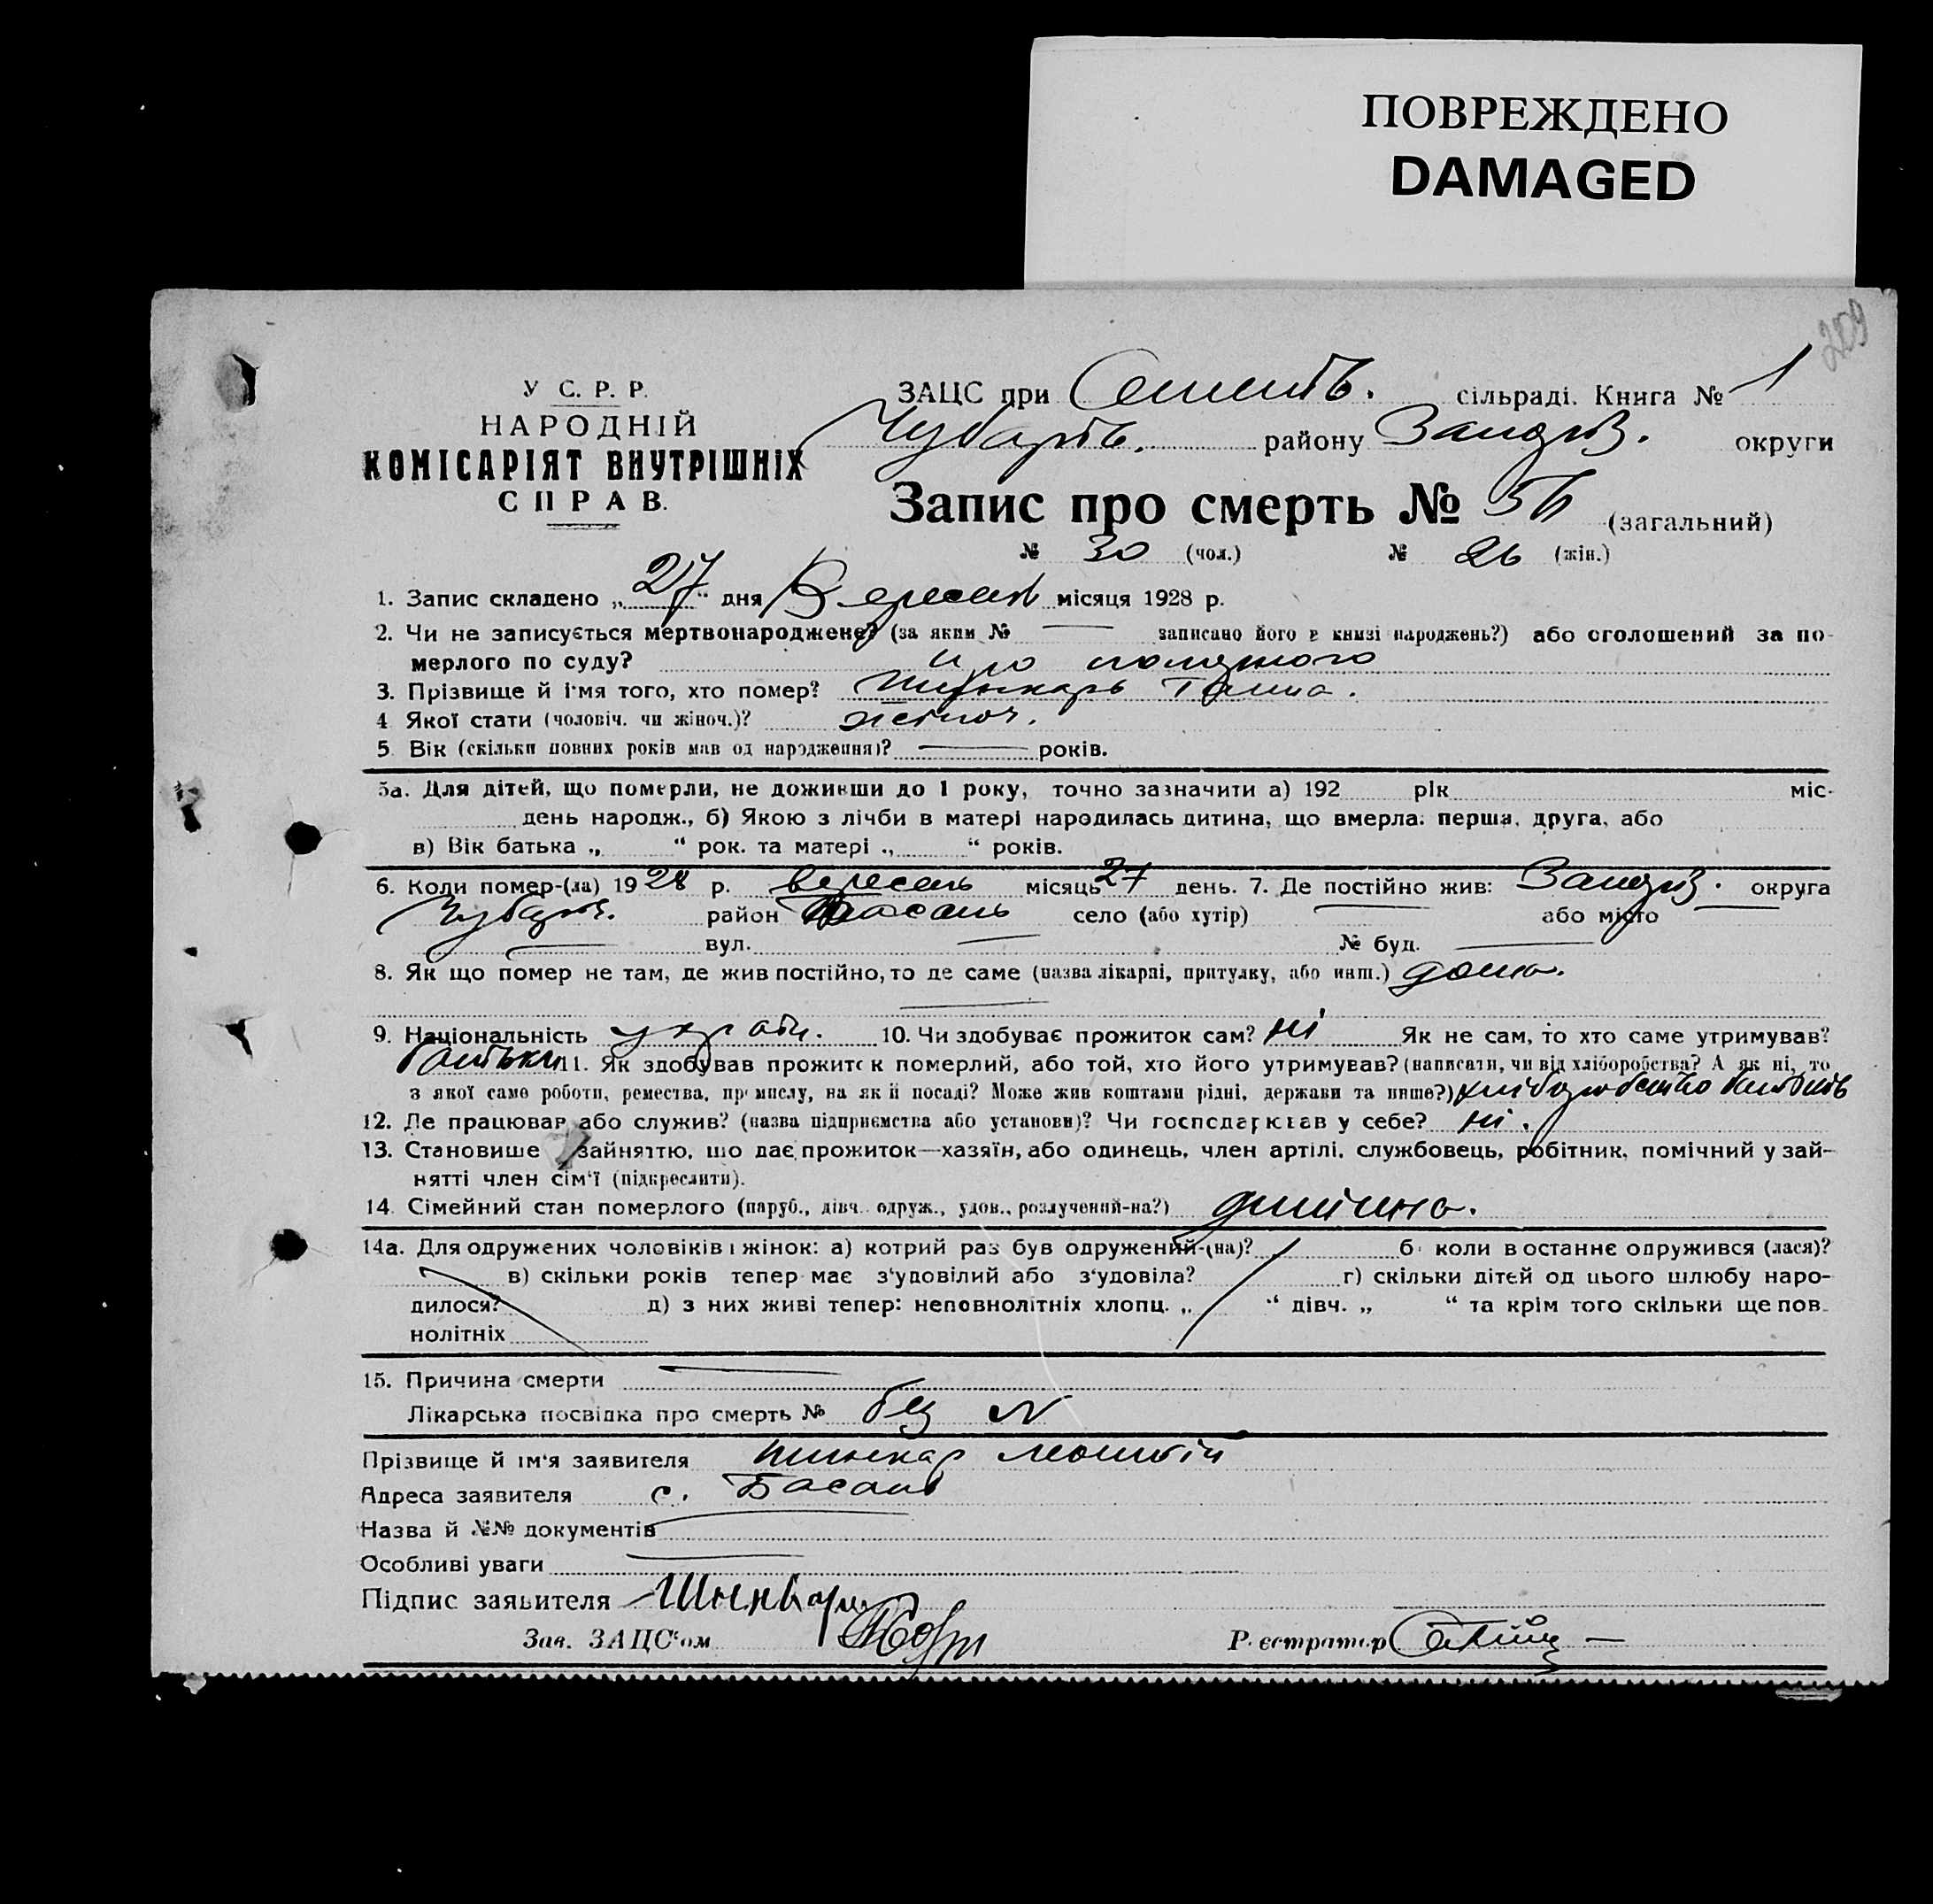 ПОВРЕЖДЕНО
DAMAGED
209
У С. Р. Р.
НАРОДНІЙ
КОМІСАРІЯТ ВНУТРІШНІХ
СПРАВ.
ЗАЦС при сільраді. Книга № 1
Чубарів. району Запоріз. округи
Запис про смерть № 56 (загальний)
№ 30 (чол.) № 26 (жін.)
1. Запис складено „27“ дня Вересня місяця 1928 р.
2. Чи не записується мертвонароджене? (за яким № — записано його в книзі народжень?) або оголошений за по-
мерлого по суду? про
3. Прізвище й і'мя того, хто помер? Шинкарь Ганна.
4 Якої стати (чоловіч. чи жіноч.)? жіноч.
5. Вік (скільки повних років мав од народження)? — років.
5а. Для дітей, що померли, не доживши до 1 року, точно зазначити а) 192 рік міс-
день народж., б) Якою з лічби в матері народилась дитина, що вмерла: перша, друга, або
в) Вік батька „ “ рок. та матері „ “ років.
6. Коли помер-(ла) 1928 р. вересень місяць 27 день. 7. Де постійно жив: Запоріз. округа
Чубарів. район Басань село (або хутір) — або місто —
— вул. — № буд. —
8. Як що помер не там, де жив постійно, то де саме (назва лікарні, притулку, або инш.) дома.
9. Національність україн. 10. Чи здобуває прожиток сам? ні Як не сам, то хто саме утримував?
батьки 11. Як здобував прожиток померлий, або той, хто його утримував? (написати, чи від хліборобства? А як ні, то
з якої саме роботи, ремества, промислу, на якій посаді? Може жив коштами рідні, держави та инше?) хліборобство батьків
12. Де працював або служив? (назва підприємства або установи)? Чи господарював у себе? ні.
13. Становише зайняттю, що дає прожиток—хазяїн, або одинець, член артілі, службовець, робітник, помічний у зай-
нятті член сім'ї (підкреслити).
14. Сімейний стан померлого (паруб., дівч. одруж., удов., розлучений-на?) дитина.
14а. Для одружених чоловіків і жінок: а) котрий раз був одружений-(на)? б) коли в останнє одружився (лася)?
в) скільки років тепер має з'удовілий або з'удовіла? г) скільки дітей од цього шлюбу наро-
дилося? д) з них живі тепер: неповнолітніх хлопц. „ “ дівч. „ “ та крім того скільки ще пов-
нолітніх
15. Причина смерти —
Лікарська посвідка про смерть № без №
Прізвище й ім'я заявителя Шинкар
Адреса заявителя с. Басань
Назва й №№ документів —
Особливі уваги —
Підпис заявителя Шинкар
Зав. ЗАЦС'ом
Реєстратор